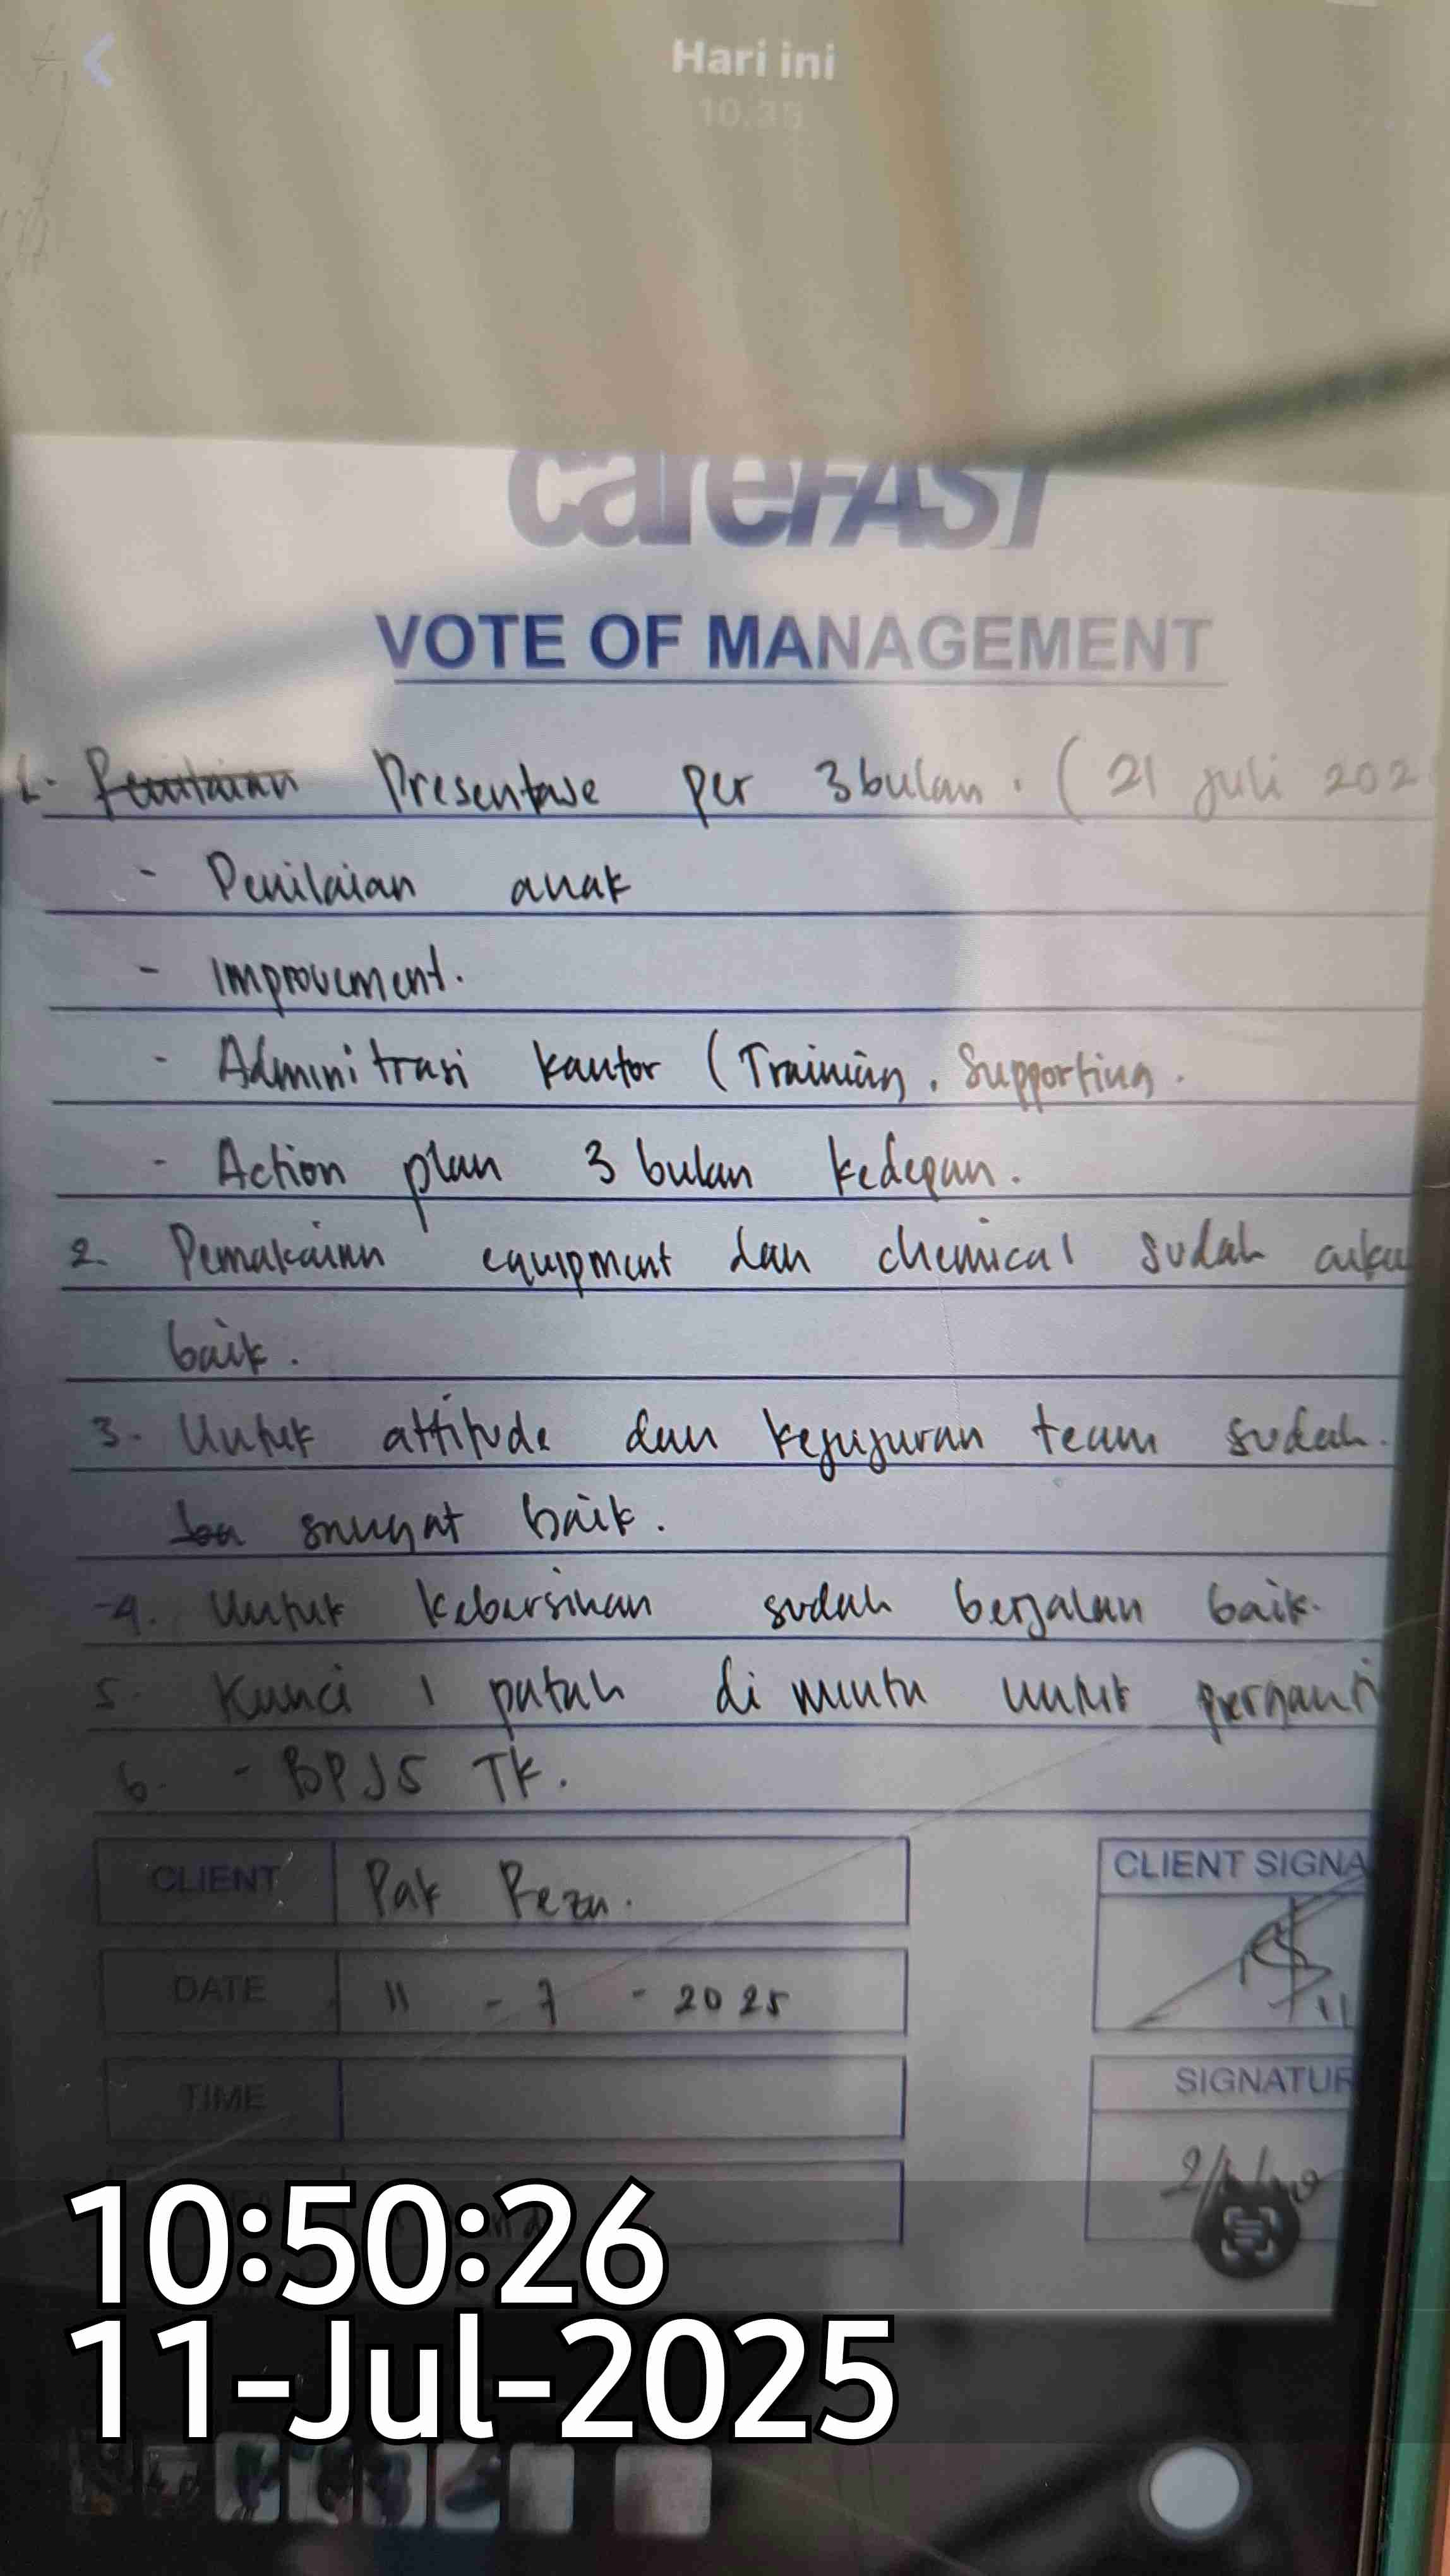 Hari ini
10.39
careFAST
VOTE OF MANAGEMENT
1. Penilaian Presentase per 3 bulan. ( 21 juli 202
- Penilaian anak
- Improvement.
- Adminitrasi kantor ( Training, Supporting.
- Action plan 3 bulan kedepan.
2. Pemakaian equipment dan chemical sudah cuku
baik.
3. Untuk attitude dan kejujuran team sudah.
sangat baik.
4. Untuk kebersihan sudah berjalan baik.
5. Kunci 1 patah di minta untukperganti
6. - BPJS TK.
CLIENT Pak Reza.
CLIENT SIGNA
DATE 11 - 7 - 2025
TIME
SIGNATUR
10:50:26
11-Jul-2025